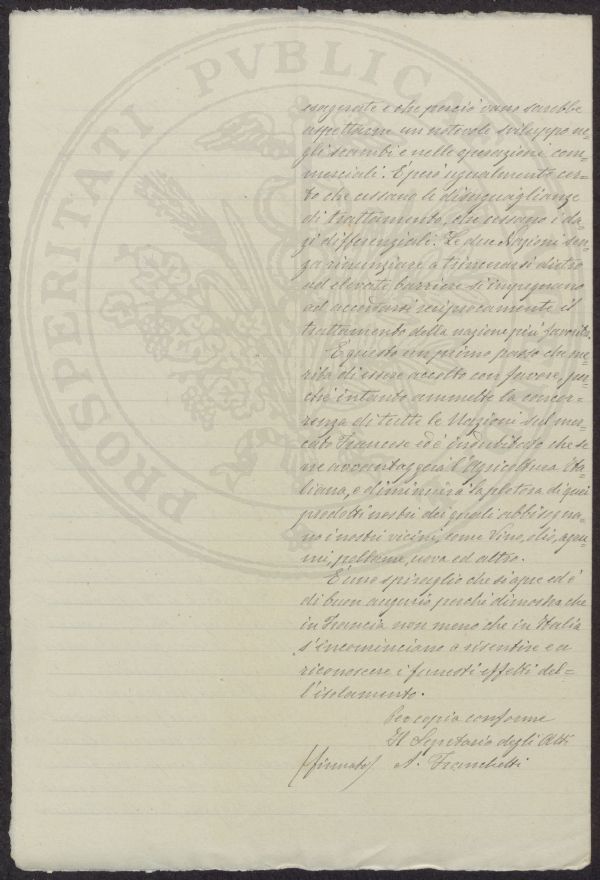 PROSPERITATI PVBLICAE
esagerate e che perciò vano sarebbe
aspettarne un notevole sviluppo ne=
gli scambi e nelle operazioni com=
merciali. È però egualmente cer=
to che cessano le disuguaglianze
di trattamento, che cessano i da=
zi differenziali. Le due Nazioni sen=
za rinunziare a trincerarsi dietro
ad elevate barriere si impegnano
ad accordarsi reciprocamente il
trattamento della nazione più favorita.
È questo un primo passo che me=
rita di essere accolto con favore, per=
ché intanto ammette la concor=
renza di tutte le Nazioni sul mer=
cato Francese ed è indubitato che se
ne avvantaggerà l'Agricoltura Ita=
liana, e diminuirà la pletora di quei
prodotti nostri dei quali abbisogna=
no i nostri vicini, come Vino, olio, agru=
mi, pollame, uova ed altro.
È uno spiraglio che si apre ed è
di buon augurio perché dimostra che
in Francia non meno che in Italia
s'incominciano a risentire e a
riconoscere i funesti effetti del=
l'isolamento.
Per copia conforme
Il Segretario degli Atti
(firmato) A. Franchetti